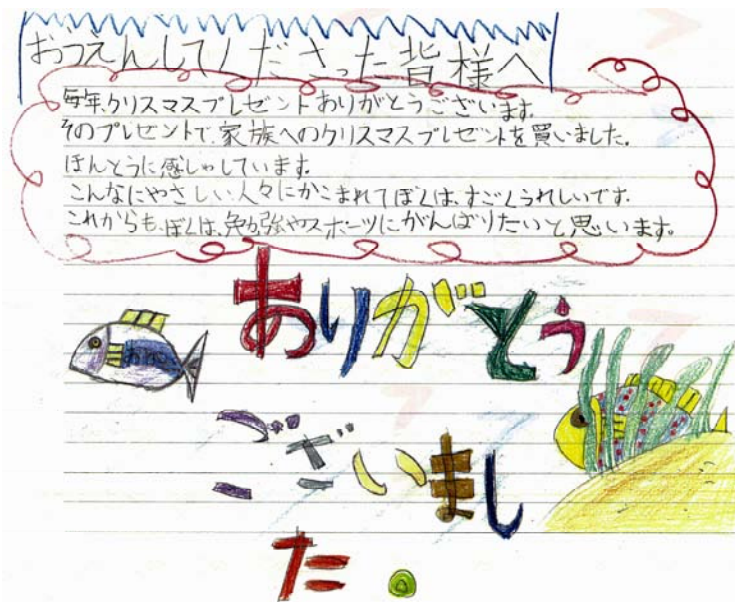 おうえんしてくださった皆様へ
毎年、クリスマスプレゼントありがとうございます。
そのプレゼントで、家族へのクリスマスプレゼントを買いました。
ほんとうに感しゃしています。
こんなにやさしい人々にかこまれてぼくは、すごくうれしいです。
これからも、ぼくは、勉強やスポーツにがんばりたいと思います。
ありがとう
ございまし
た。